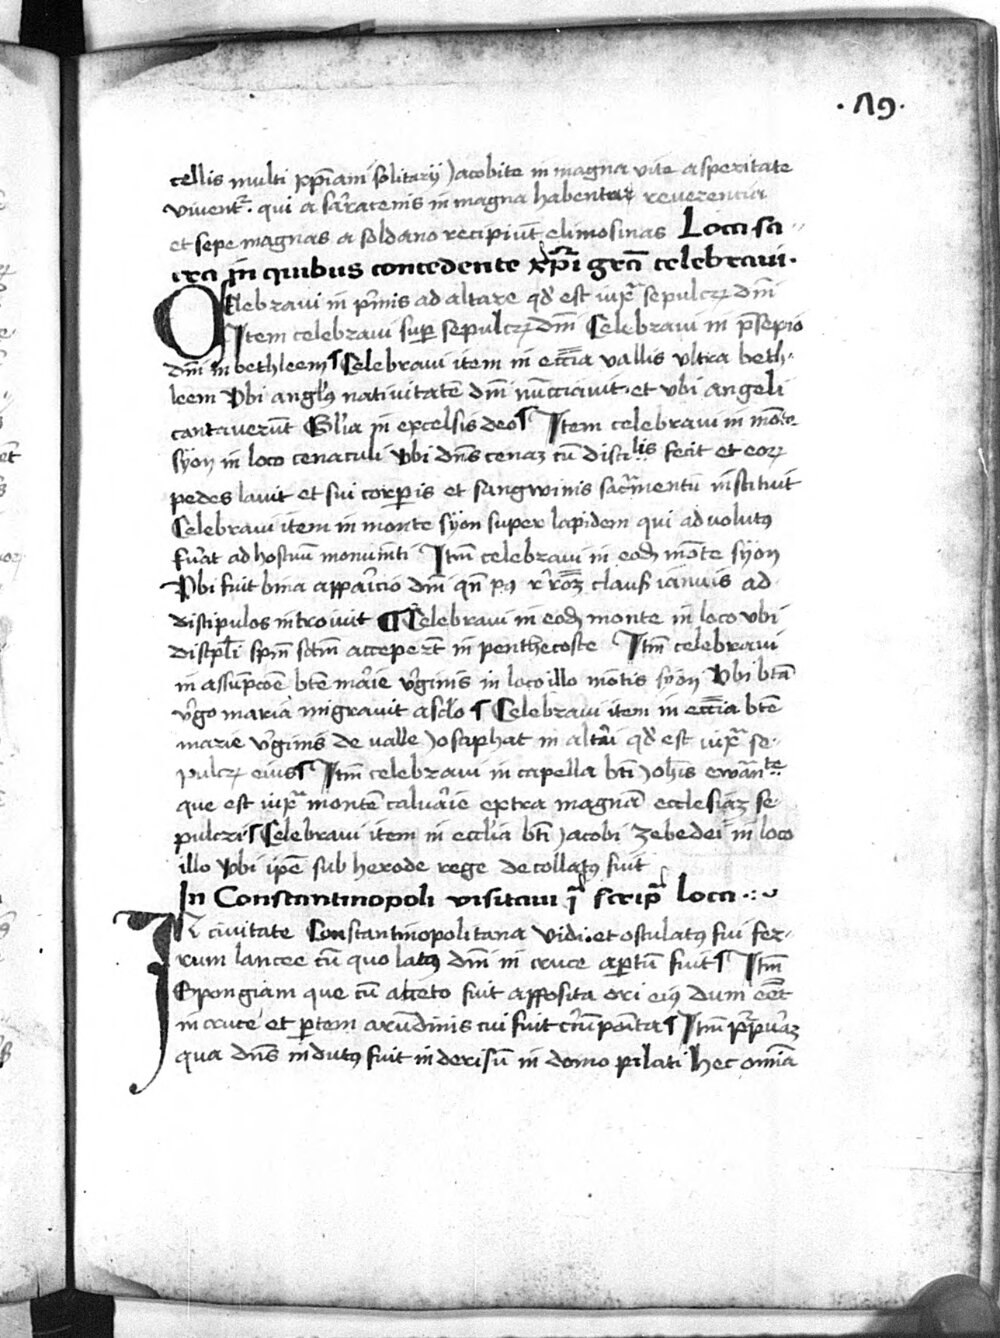 ·Λ9·
cellis multi xp̄iani solitarij Jacobite in magna vite asperitate
vivent᷑. qui a sarracenis in magna habentur reverencia
et sepe magnas a soldano recipiūt elimosinas Loca sa
cra in quibus concedente xp̄i grā celebravi.
Celebravi in p̄mis ad altare qd̓ est iux̄ sepulcꝝ dn̄i
Item celebravi sup̱ sepulcꝝ dn̄i Celebravi in p̄sepio
dn̄i in bethleem ¶ Celebravi item in ecc̄ia vallis ultra beth-
leem Vbi angl̓us nativitatē dn̄i nūcciavit. et vbi angeli
cantaverūt Gl̓ia in excelsis deo ¶ Item celebravi in mōte
syon in loco cenaculi Vbi dn̄s cenaz cū discilis fecit et eoꝝ
pedes lavit et sui corꝑis et sangwinis sac̄mentū instituit
Celebravi item in monte syon super lapidem qui advolutꝰ
fu̓at ad hostiuū monum̄ti Itm̄ celebravi in eod̄ mōte syon
Vbi fuit bina apparicio dn̄i qn̄ claus̄ ianuis ad
discipulos introivit ¶ Celebravi in eod̄ monte in loco vbi
discpl̓i spm̄ sctm̄ acceper̄t in penthecoste Itm̄ celebravi
in assūpcōe btē mar̓ie v̓ginis in loco illo mōtis syon Vbi btā
v̓go maria migravit a sclo ¶ Celebravi item in ecc̄ia btē
marie v̓ginis de valle Josaphat in altari qd̓ est iux̄ se-
pulcꝝ eius ¶ Itm̄ celebravi in capella bt̄i Joh̄is ewān̄te
que est iux̄ montē calvar̓ie extra magnā ecclesiaz se-
pulcri ¶ Celebravi item in eccl̓ia bt̄i Jacobi Zebedei in loco
illo Vbi ip̄e sub herode rege decollatꝰ fuit
In Constantinopoli visitavi ī scrip̄ loca
In civitate Constantinopolitana vidi. et osculatꝰ fui fer-
rum lancee cū quo latꝰ dn̄i in cruce aꝑtū fuit ¶ Itm̄
Spongiam que cū aceto fuit apposita ori eiꝰ dum eēt
in cruce et ꝑtem arūdinis cui fuit ¶ Itm̄ p̄puraz
qua dn̄s indutꝰ fuit in derisū in domo pilati hec omīa